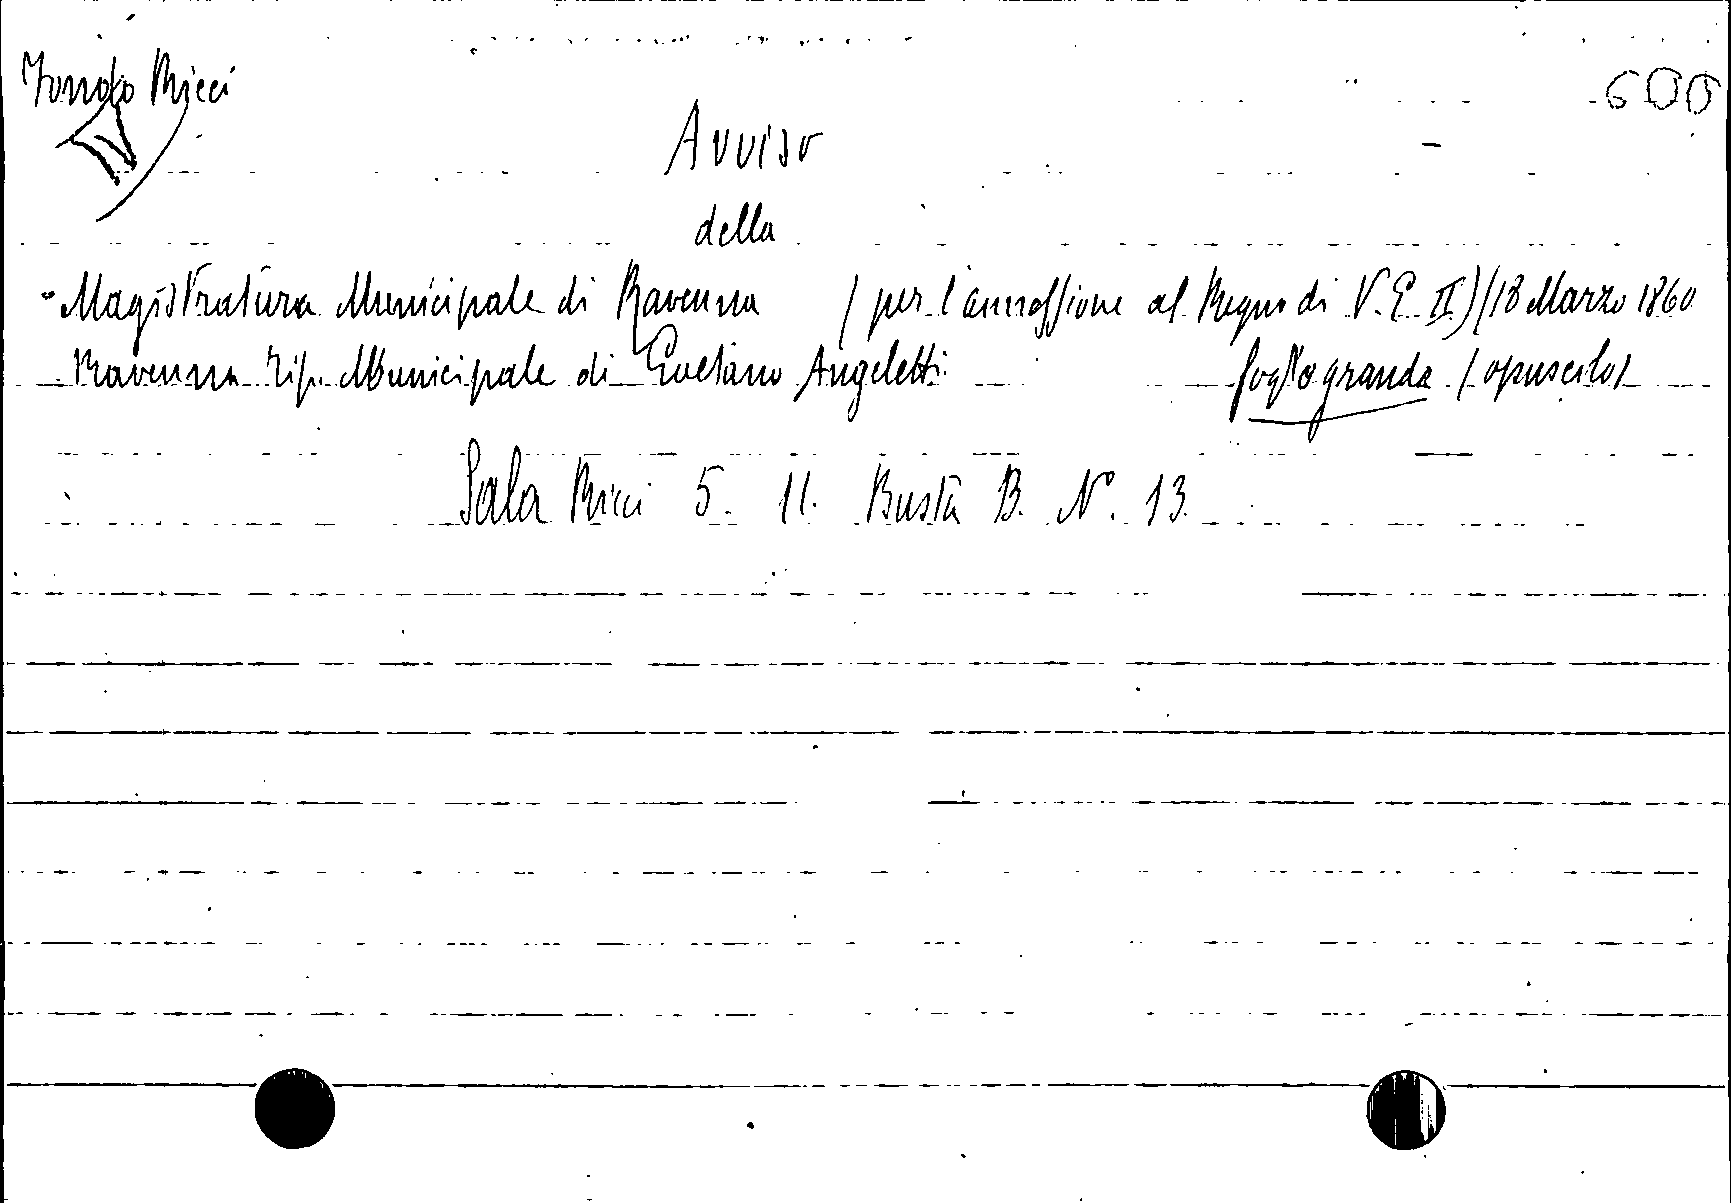 Fondo Ricci
600
Avviso
della
Magistratura Municipale di Ravenna (per l'annessione al Regno di V. E. II) (18 Marzo 1860
Ravenna Tip. Municipale di Gaetano Angeletti foglio grande (opuscolo)
Sala Ricci 5. 11. Busta B. N°. 13